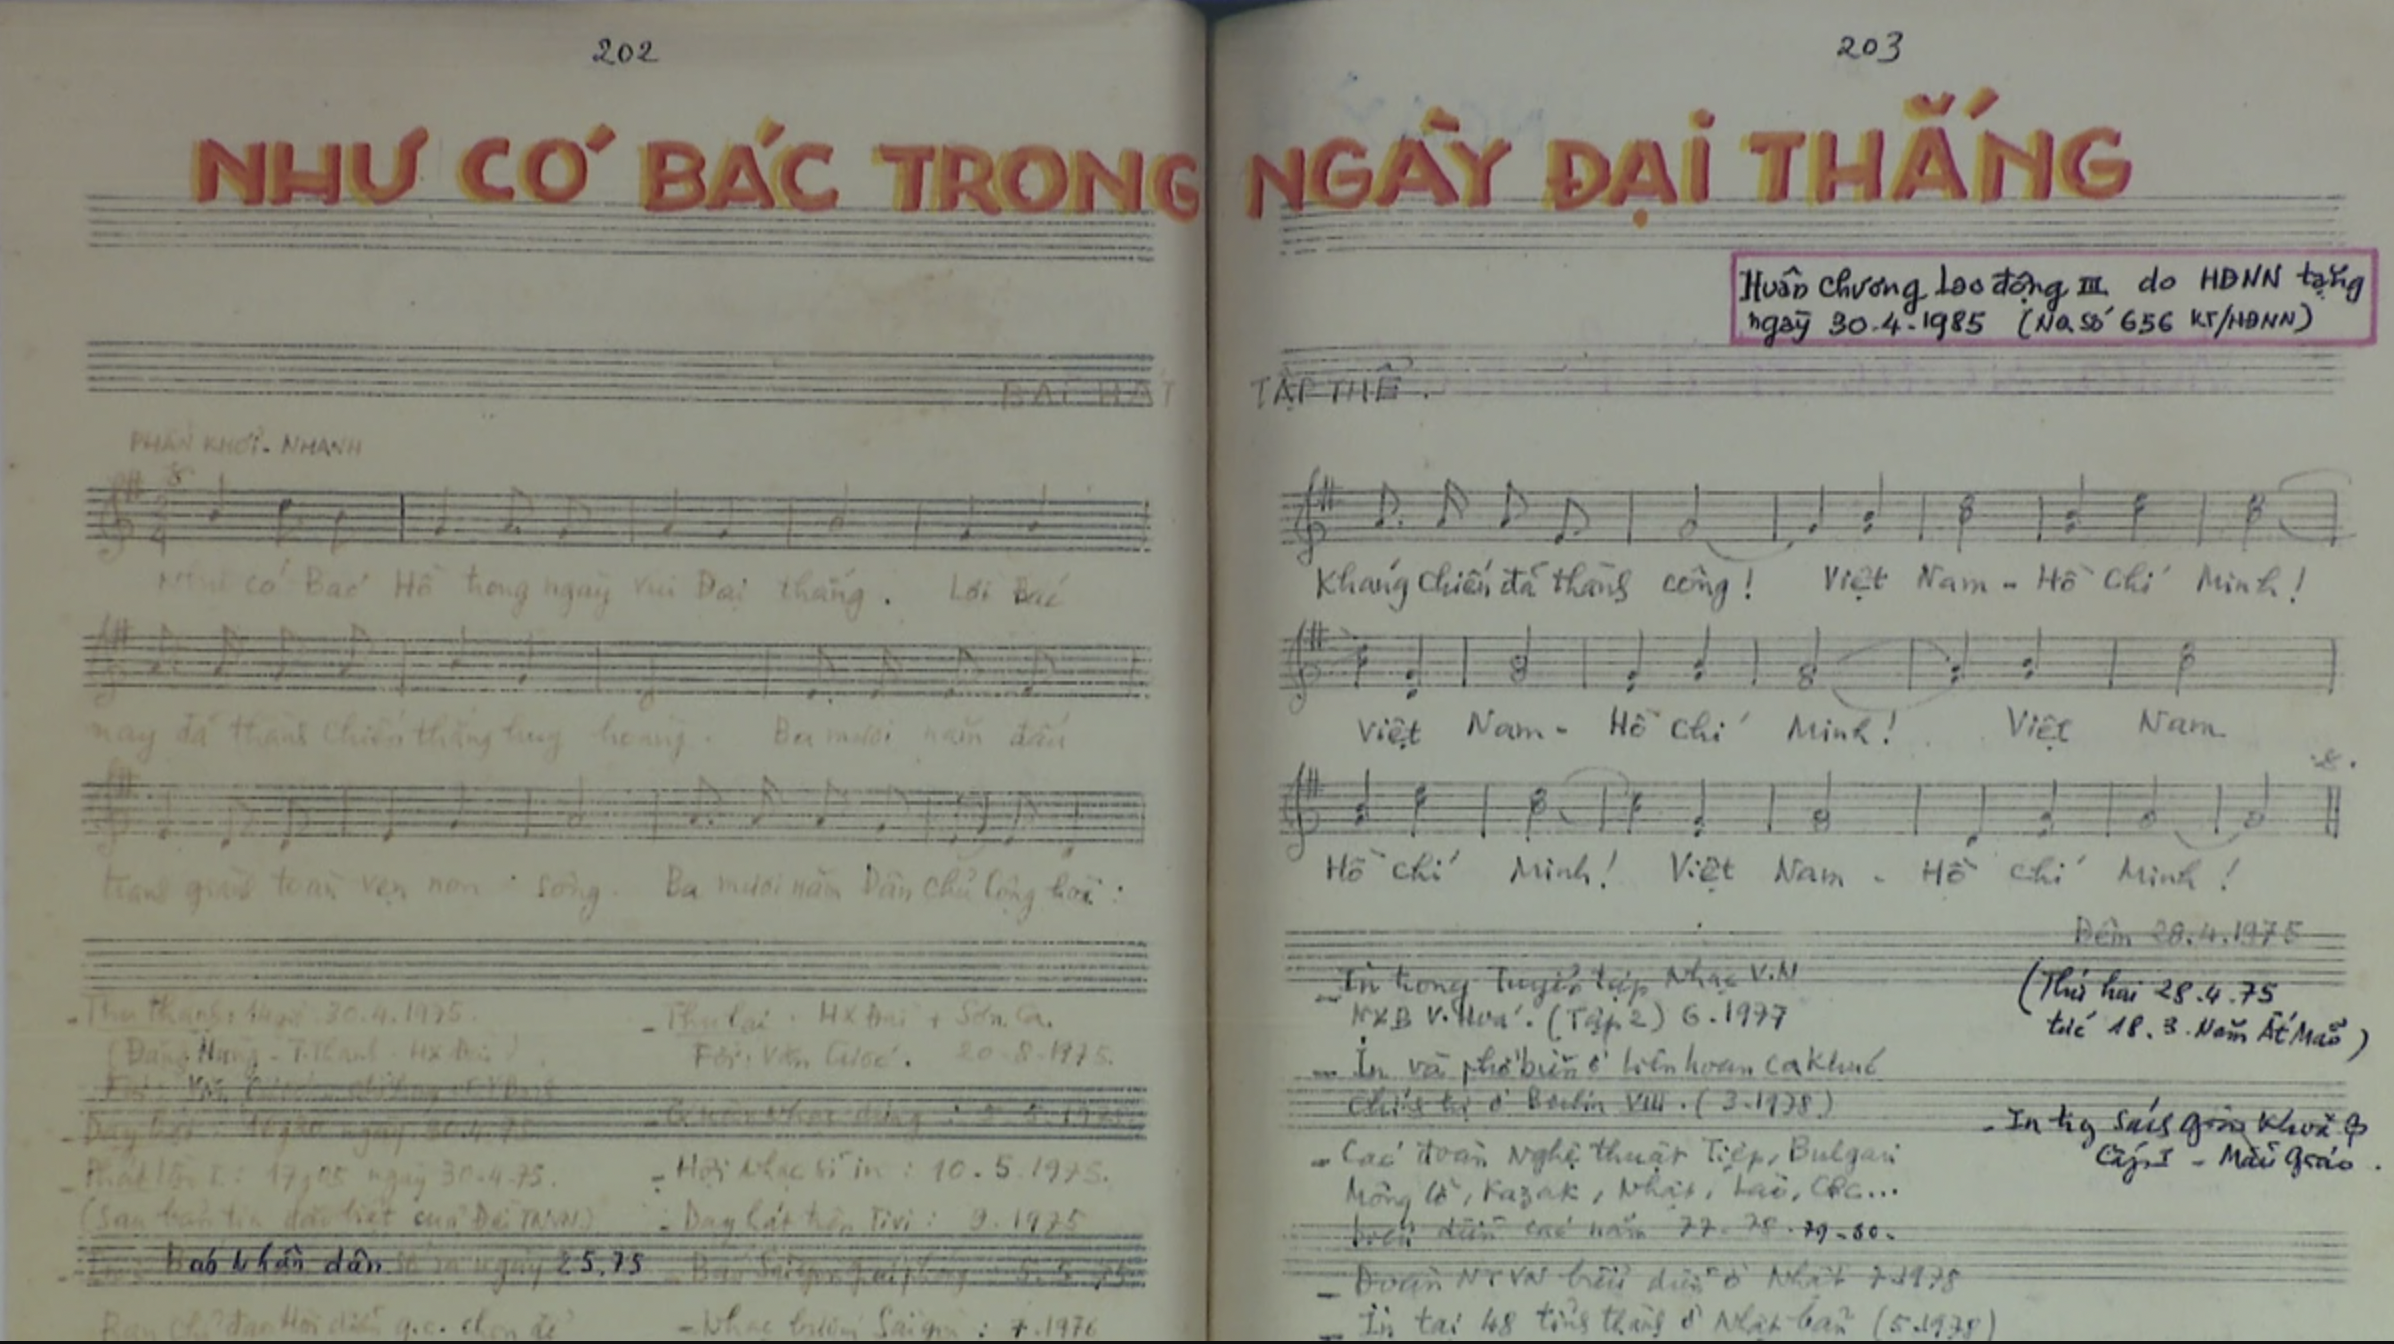 202
203
NHƯ CÓ BÁC TRONG NGÀY ĐẠI THẮNG
Huân chương Lao động III do HĐNN tặng
ngày 30.4.1985 (NQ số 656 KT/HĐNN)
BÀI HÁT TẬP THỂ.
PHẤN KHỞI. NHANH
Như có Bác Hồ trong ngày vui Đại thắng. Lời Bác
nay đã thành chiến thắng huy hoàng. Ba mươi năm đấu
tranh giành toàn vẹn non sông. Ba mươi năm Dân chủ Cộng hoà:
- Thu thanh: 30.4.1975.
(Đăng Hùng - T. Thanh - HX Đài)
- Dạy hát: ngày 30.4.75
- Phát lần I: 17g05 ngày 30.4.75.
(Sau bản tin đặc biệt của Đài TNVN)
Báo Nhân dân số ra ngày 2.5.75
- Thu lại: HX Đài + Sơn Ca.
20-8-1975.
- Quân nhạc dùng:
- Hội Nhạc sĩ in: 10.5.1975.
- Dạy hát trên Tivi: 9.1975
- Báo Saigon giải phóng 5.5.75
- Nhạc trưởng Saigon: 7.1976
Kháng chiến đã thành công! Việt Nam - Hồ Chí Minh!
Việt Nam - Hồ Chí Minh! Việt Nam
Hồ Chí Minh! Việt Nam - Hồ Chí Minh!
Đêm 28.4.1975
(Thứ hai 28.4.75
tức 18.3. Năm Ất Mão)
- In trong Tuyển tập Nhạc V.N
NXB V. Hoá. (Tập 2) 6.1977
- In và phổ biến ở liên hoan ca khúc
chính trị ở Berlin VIII. (3.1978)
- Các đoàn Nghệ thuật Tiệp, Bulgari
Mông Cổ, Kazak, Nhật, Lào, CPC...
biểu diễn các năm 77-78-79-80.
- Đoàn NTVN biểu diễn ở Nhật 7.1978
- In tại 48 tỉnh thành ở Nhật bản (5.1978)
- In trg Sách Giáo Khoa
Cấp I - Mẫu Giáo.